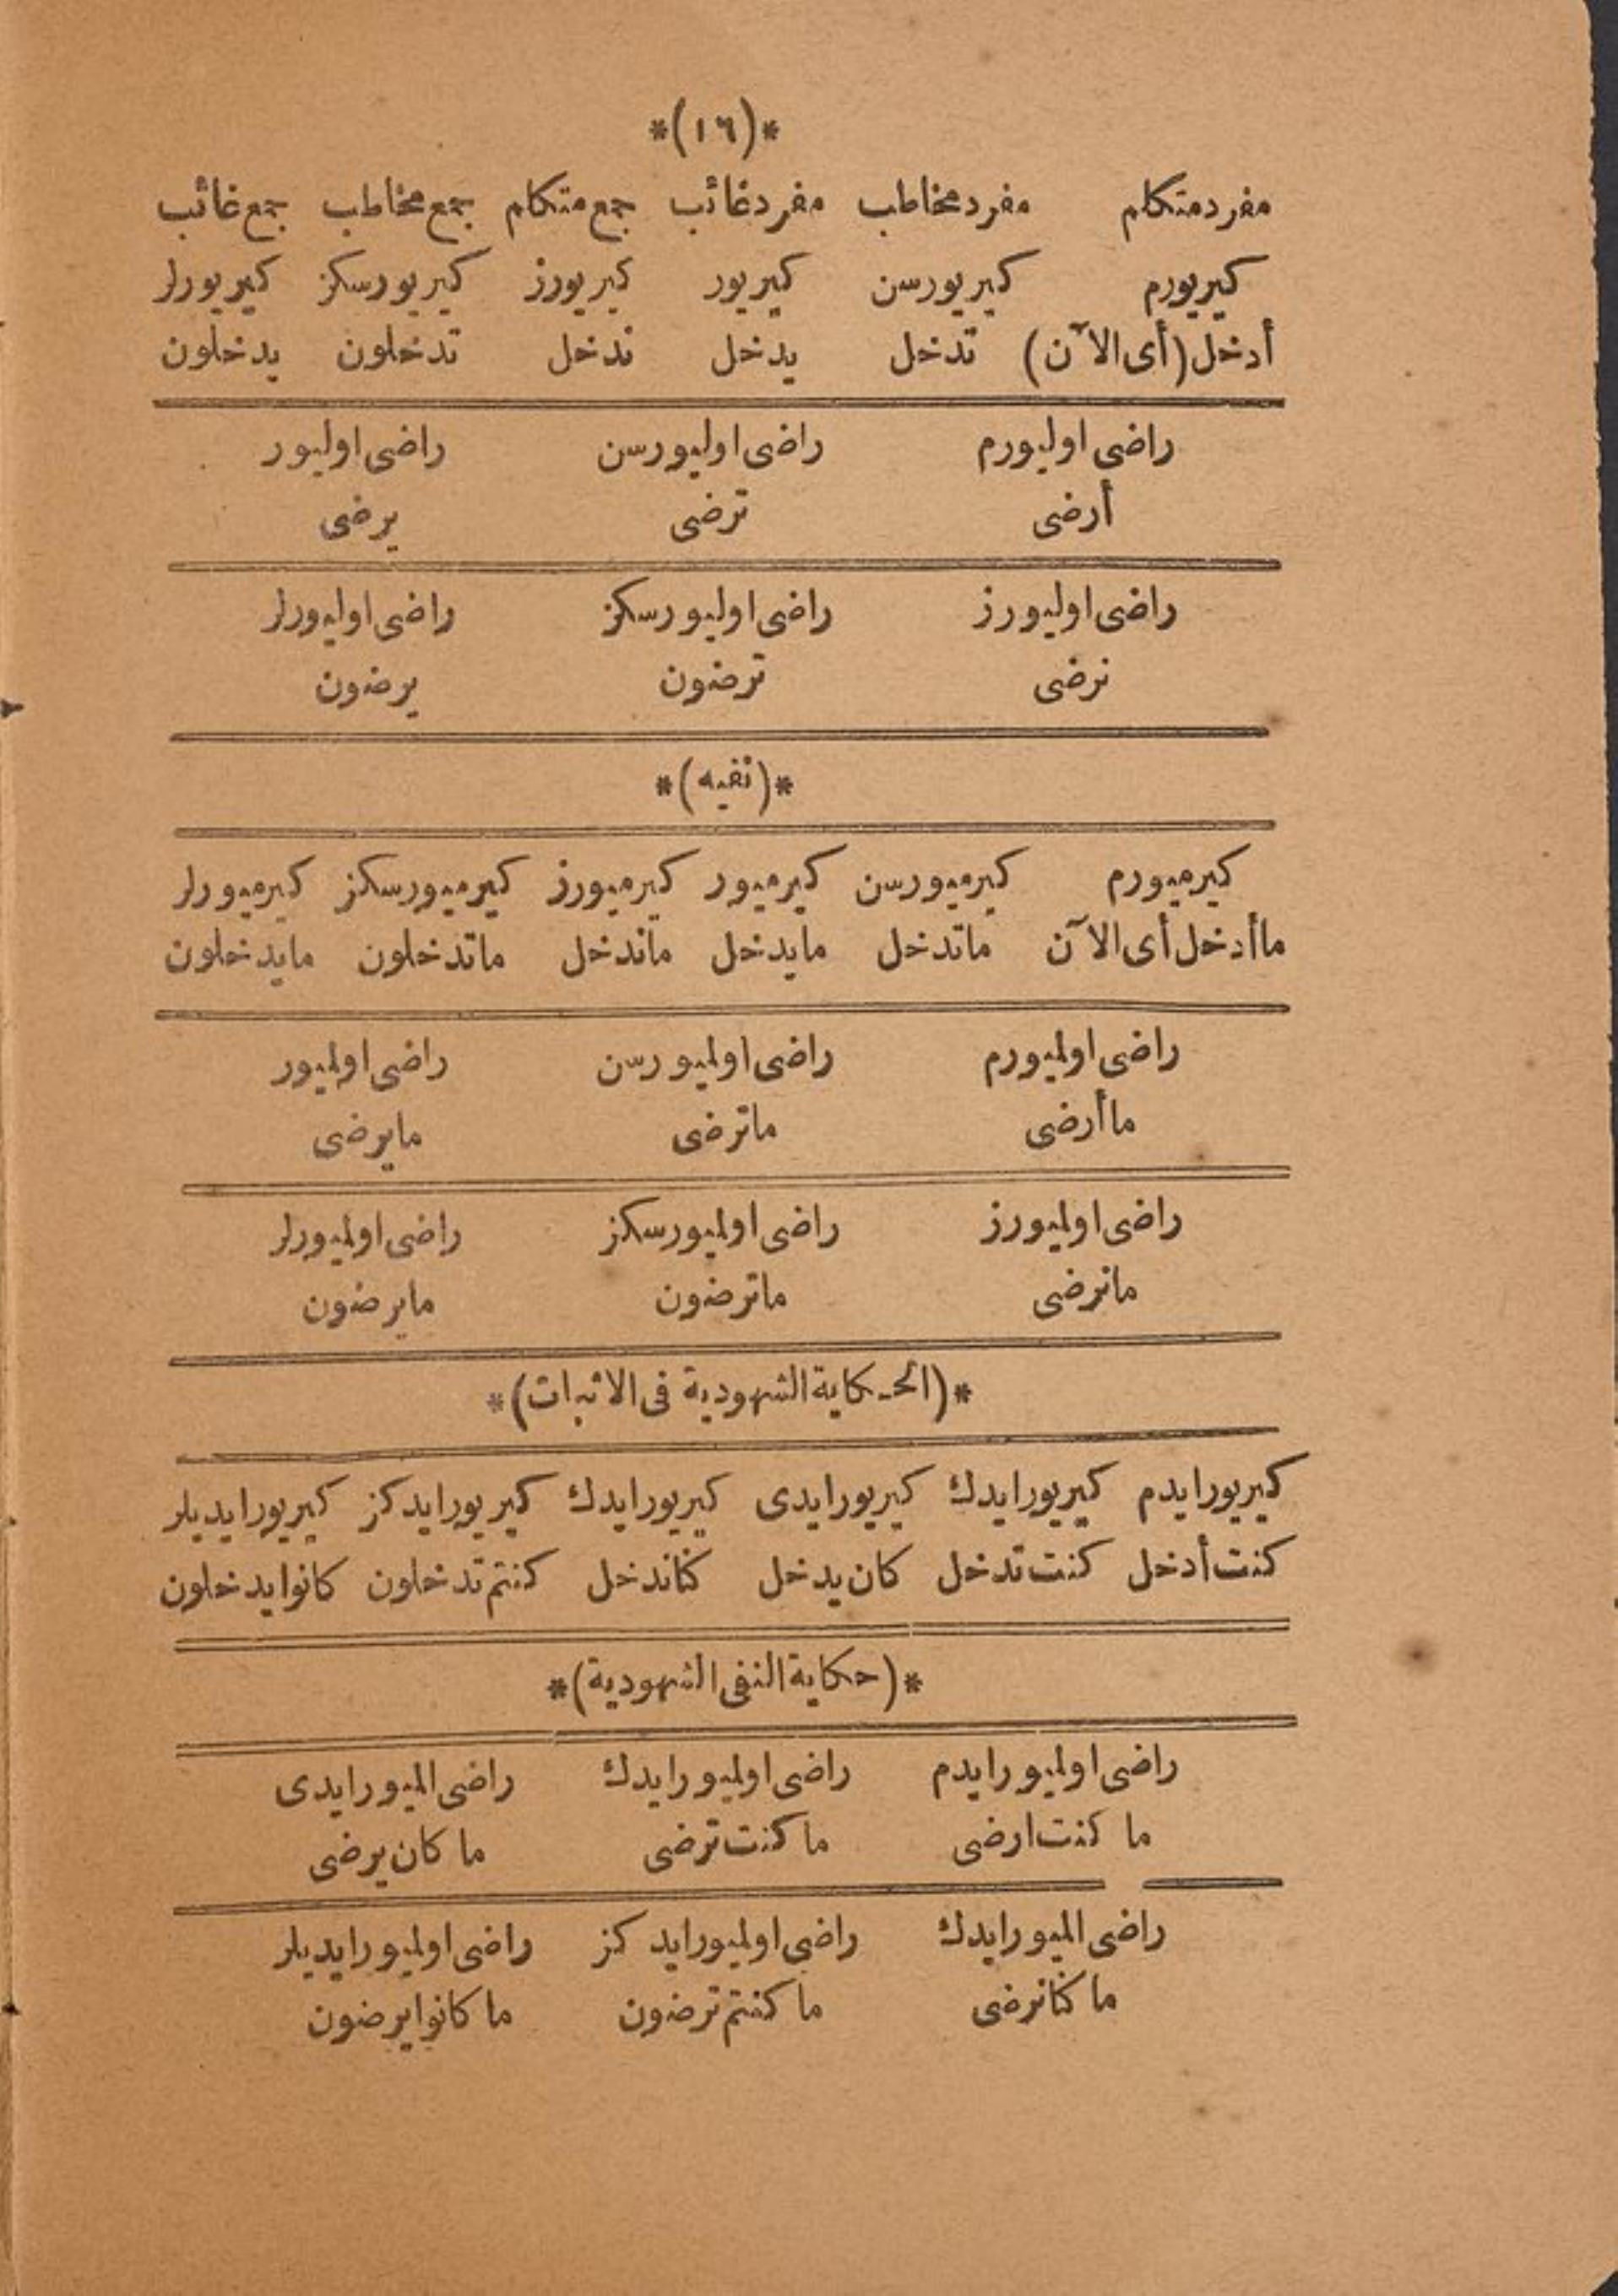 *(١٦)*
مفرد متكلم مفرد مخاطب مفرد غائب جمع متكلم جمع مخاطب جمع غائب
كيريورم كيريورسن كيريور كيريورز كيريورسكز كيريورلر
أدخل (أى الآن) تدخل يدخل ندخل تدخلون يدخلون
راضى اوليورم راضى اوليورسن راضى اوليور
أرضى ترضى يرضى
راضى اوليورز راضى اوليورسكز راضى اوليورلر
نرضى ترضون يرضون
*(نفيه)*
كيرميورم كيرميورسن كيرميور كيرميورز كيرميورسكز كيرميورلر
ما أدخل أى الآن ما تدخل ما يدخل ما ندخل ما تدخلون ما يدخلون
راضى اولميورم راضى اولميورسن راضى اولميور
ما أرضى ما ترضى ما يرضى
راضى اولميورز راضى اولميورسكز راضى اولميورلر
ما نرضى ما ترضون ما يرضون
*(الحكاية الشهودية فى الاثبات)*
كيريورايدم كيريورايدك كيريورايدى كيريورايدك كيريورايدكز كيريورايديلر
كنت أدخل كنت تدخل كان يدخل كنا ندخل كنتم تدخلون كانوا يدخلون
*(حكاية النفى الشهودية)*
راضى اولميورايدم راضى اولميورايدك راضى الميورايدى
ما كنت ارضى ما كنت ترضى ما كان يرضى
راضى الميورايدك راضى اولميورايدكز راضى اولميورايديلر
ما كنا نرضى ما كنتم ترضون ما كانوا يرضون